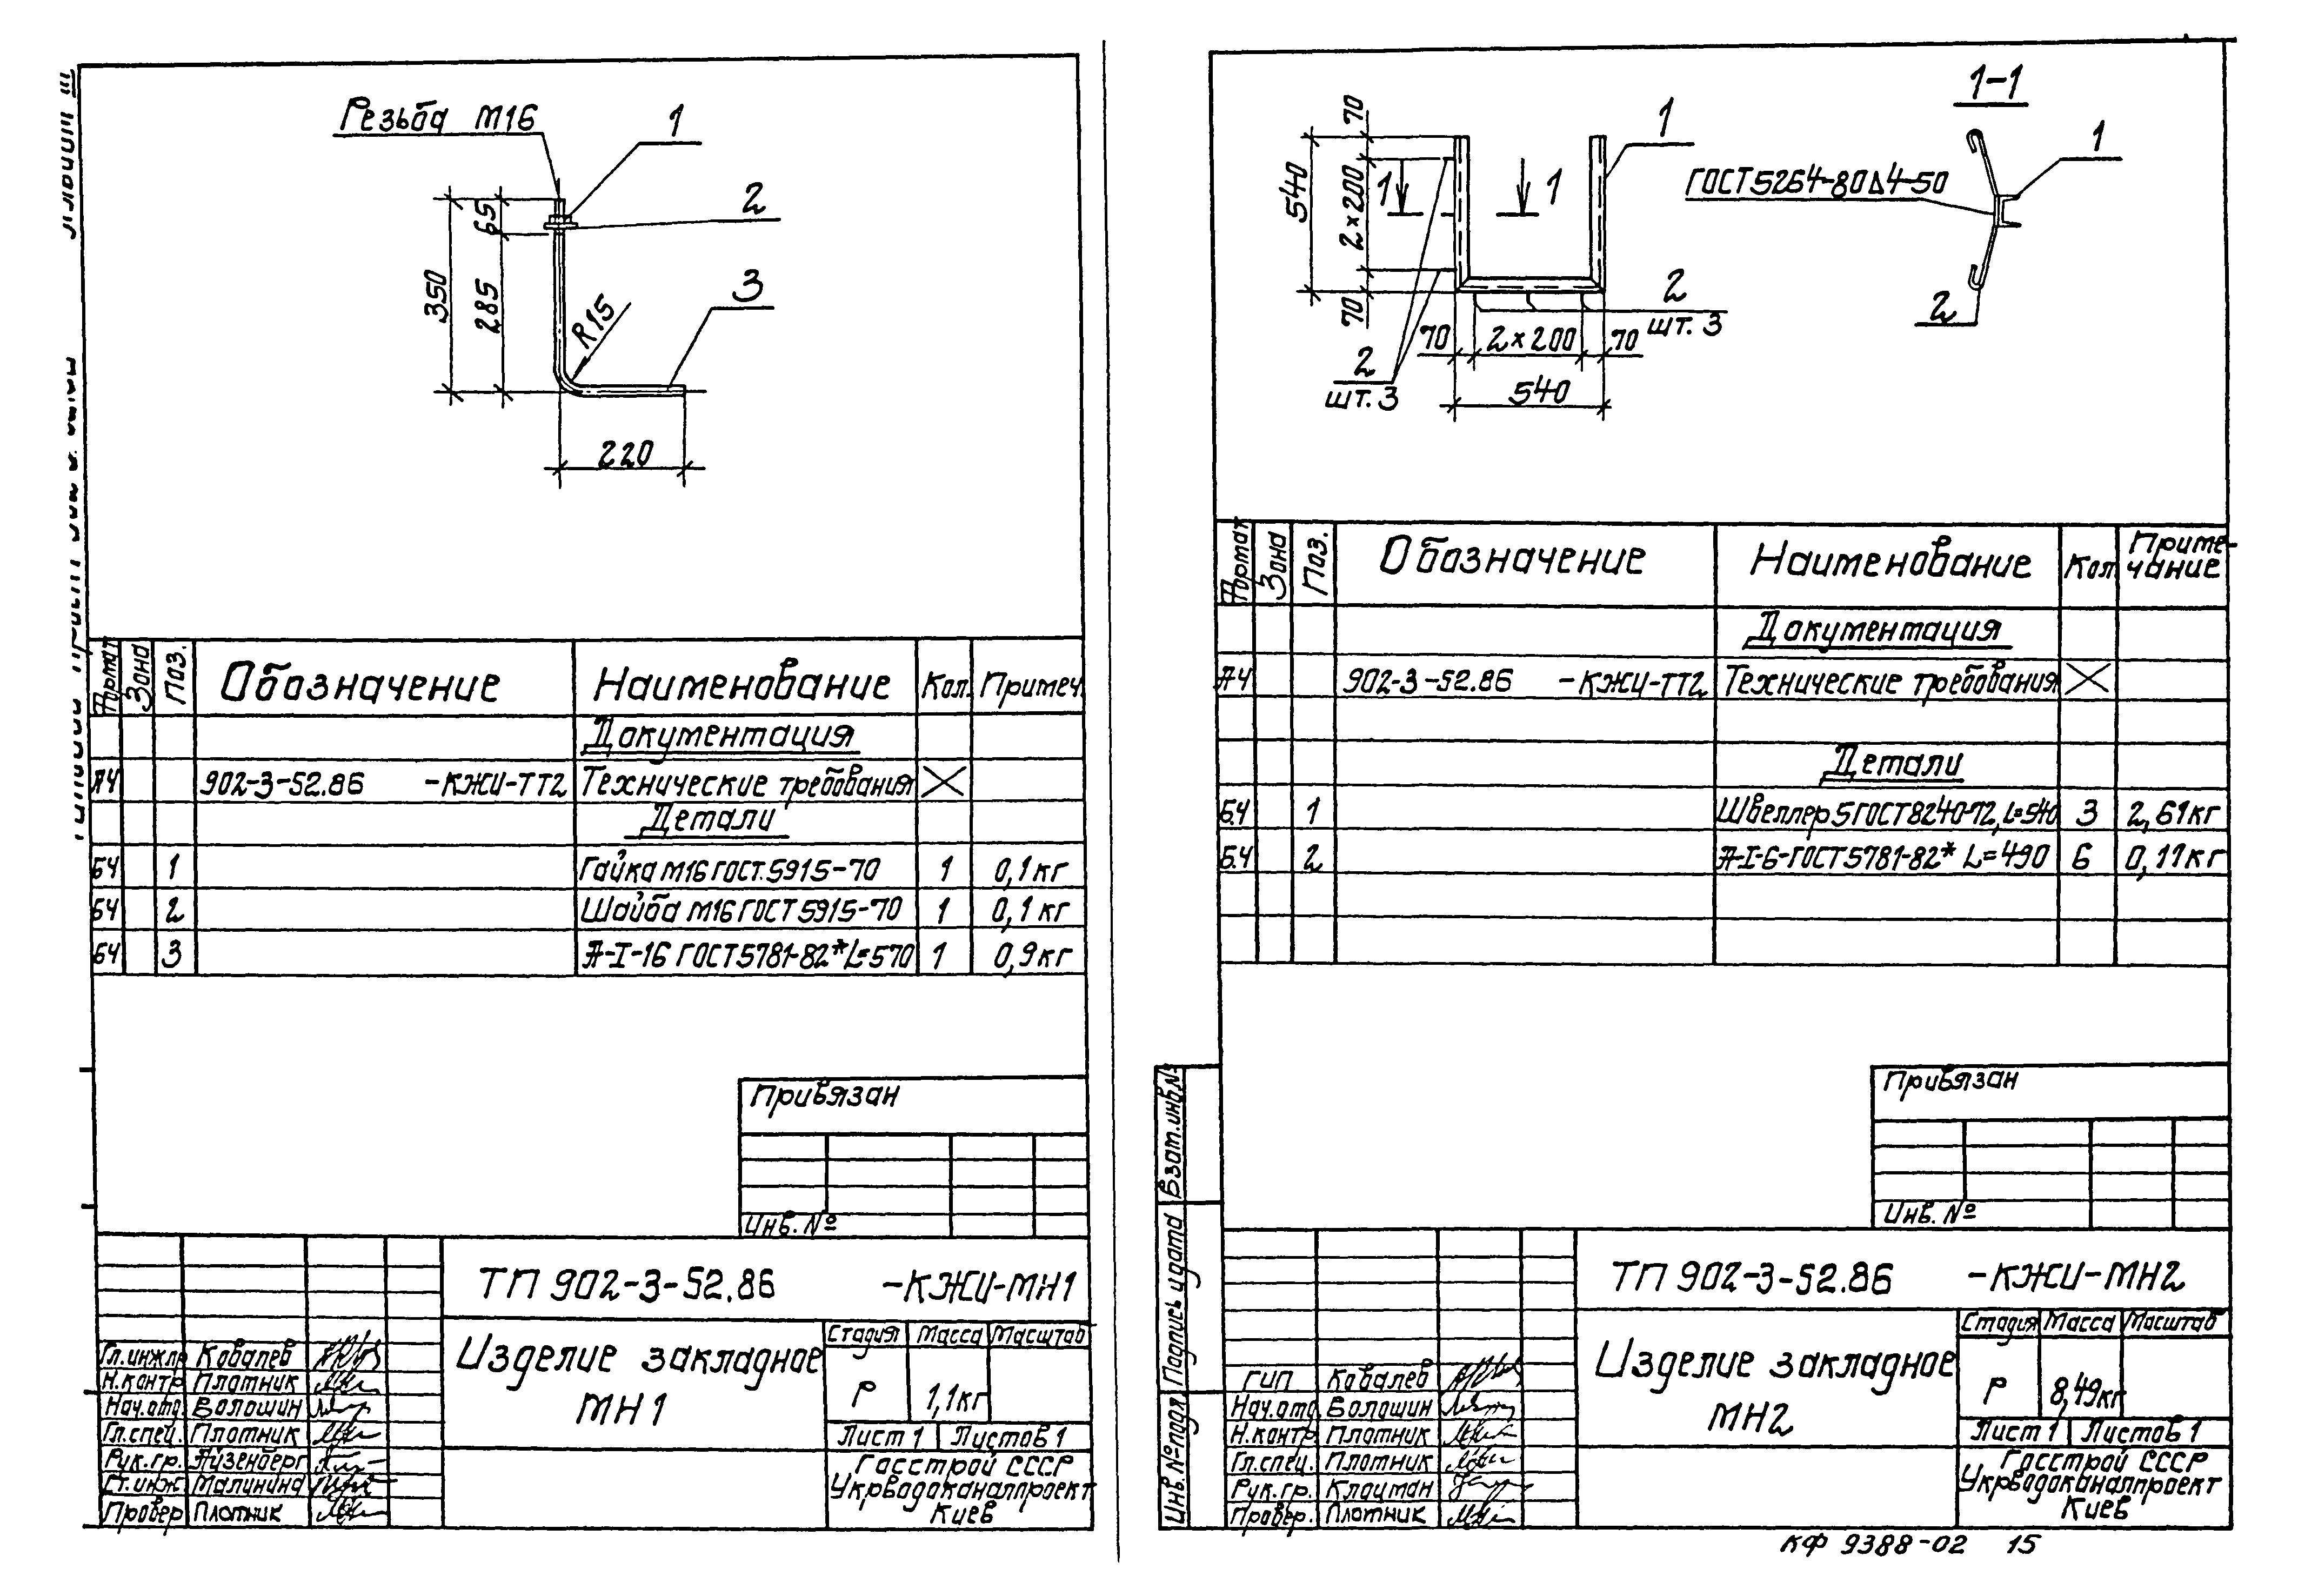 Резьба М16
1
2
3
65
350
285
R15
220
Формат Зона Поз. Обозначение Наименование Кол. Примеч.
Документация
А4 902-3-52.86 -КЖИ-ТТ2 Технические требования
Детали
БЧ 1 Гайка М16 ГОСТ.5915-70 1 0,1кг
БЧ 2 Шайба М16 ГОСТ 5915-70 1 0,1кг
БЧ 3 А-I-16 ГОСТ 5781-82* L=570 1 0,9кг
Привязан
Инв. №
ТП 902-3-52.86 -КЖИ-МН1
Изделие закладное
МН1
Стадия Масса Масштаб
Р 1,1кг
Лист 1 Листов 1
Госстрой СССР
Укрводоканалпроект
Киев
Гл.инж.пр Ковалев
Н.контр Плотник
Нач.отд. Волошин
Гл.спец. Плотник
Рук.гр. Айзенберг
Ст.инж. Малинина
Провер Плотник
1-1
70
540
2×200
70
1 1
1
2
шт. 3
2
шт. 3
70 2×200 70
540
ГОСТ5264-80Δ4-50
1
2
Формат Зона Поз. Обозначение Наименование Кол Приме
чание
Документация
А4 902-3-52.86 -КЖИ-ТТ2 Технические требования
Детали
Б.Ч 1 Швеллер 5 ГОСТ8240-72, L=540 3 2,61кг
Б.Ч 2 А-I-6-ГОСТ5781-82* L=490 6 0,11кг
Привязан
Инв. №
Взам.инв.№
Подпись и дата
Инв.№подл
ТП 902-3-52.86 -КЖИ-МН2
Изделие закладное
МН2
Стадия Масса Масштаб
Р 8,49кг
Лист 1 Листов 1
Госстрой СССР
Укрводоканалпроект
Киев
ГИП Ковалев
Нач.отд Волошин
Н.контр Плотник
Гл.спец. Плотник
Рук.гр. Клауман
Провер. Плотник
КФ 9388-02 15